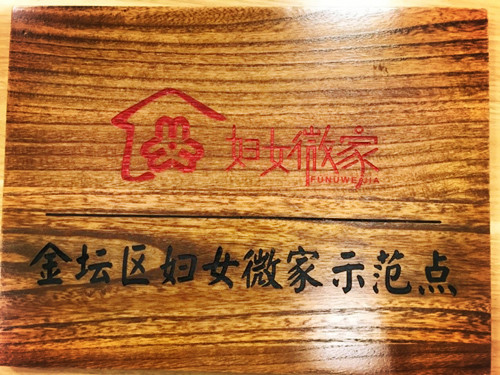 妇女微家
FUNÜWEIJIA
金坛区妇女微家示范点